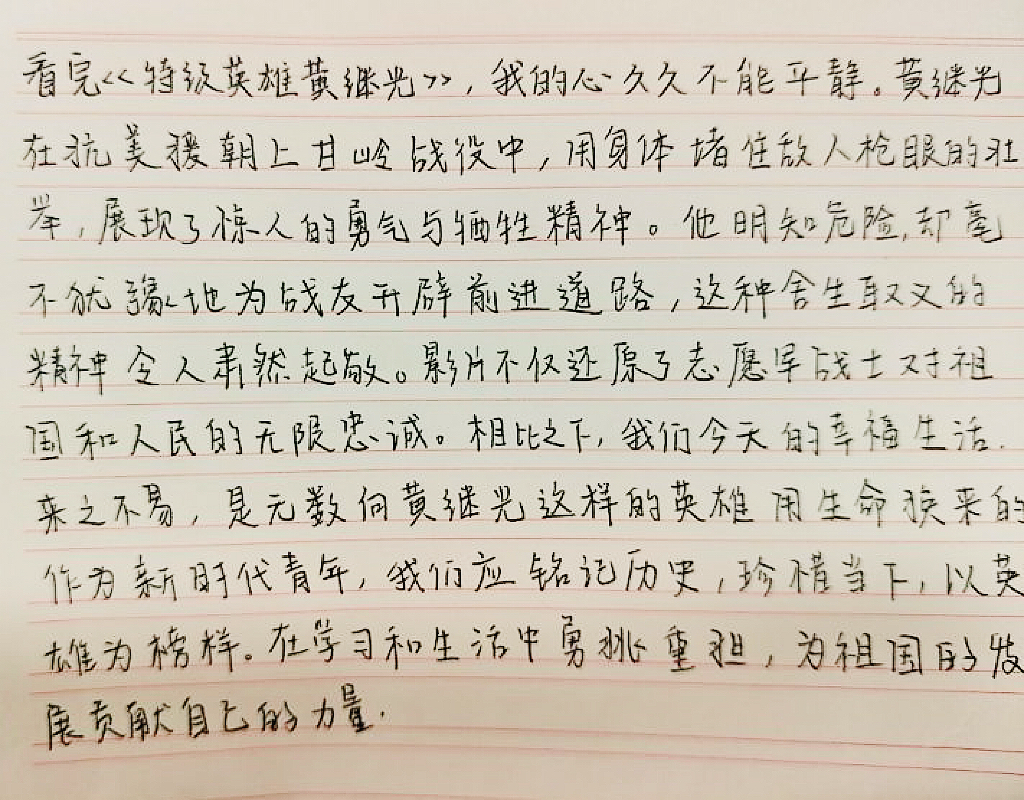 看完<<特级英雄黄继光>>,我的心久久不能平静。黄继光
在抗美援朝上甘岭战役中,用身体堵住敌人枪眼的壮
举,展现了惊人的勇气与牺牲精神。他明知危险,却毫
不犹豫地为战友开辟前进道路,这种舍生取义的
精神令人肃然起敬。影片不仅还原了志愿军战士对祖
国和人民的无限忠诚。相比之下,我们今天的幸福生活.
来之不易,是无数向黄继光这样的英雄用生命换来的
作为新时代青年,我们应铭记历史,珍惜当下,以英
雄为榜样。在学习和生活中勇挑重担,为祖国的发
展贡献自己的力量.